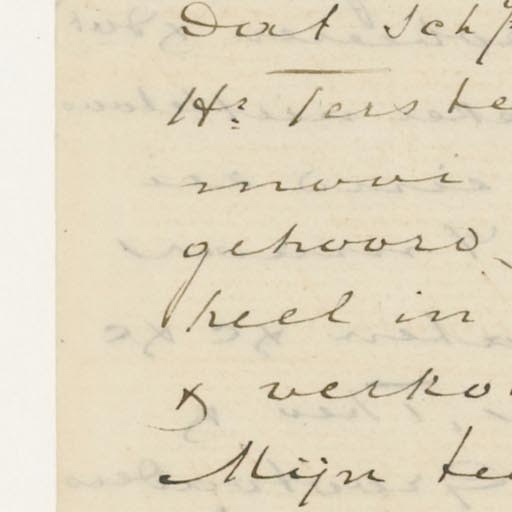 Dat sch
Hr. Terste
mooi
gehoord,
heel in
& verko
Mijn te